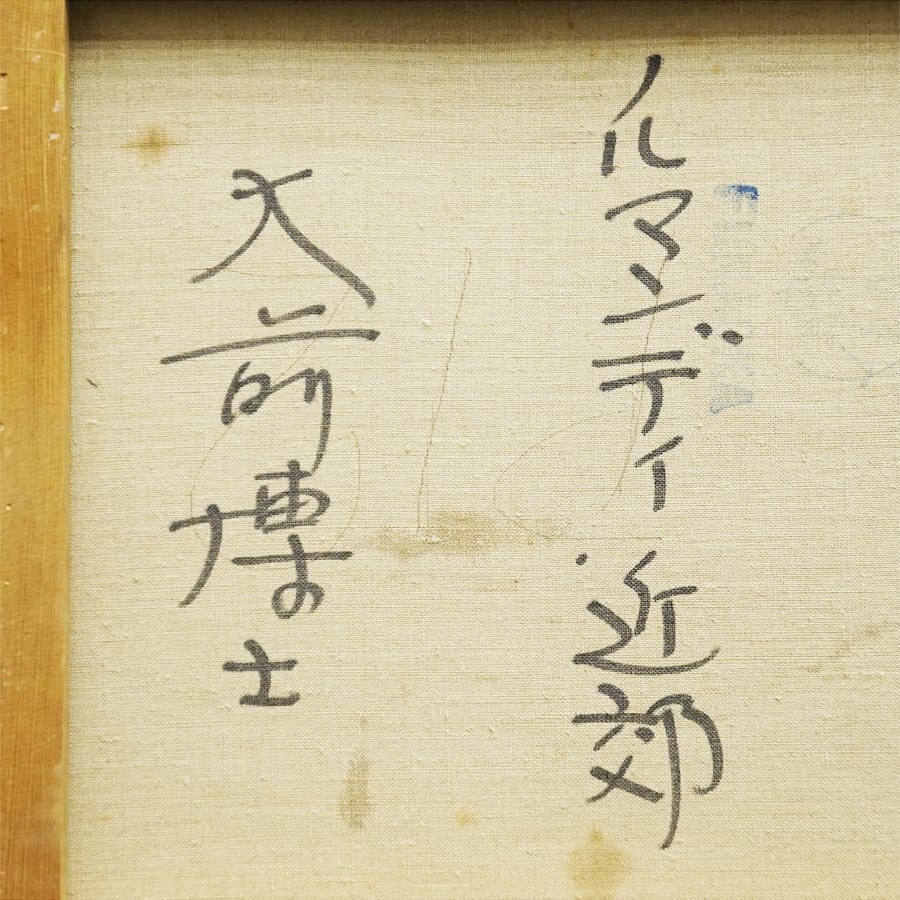 ノルマンディ近郊
大前博士